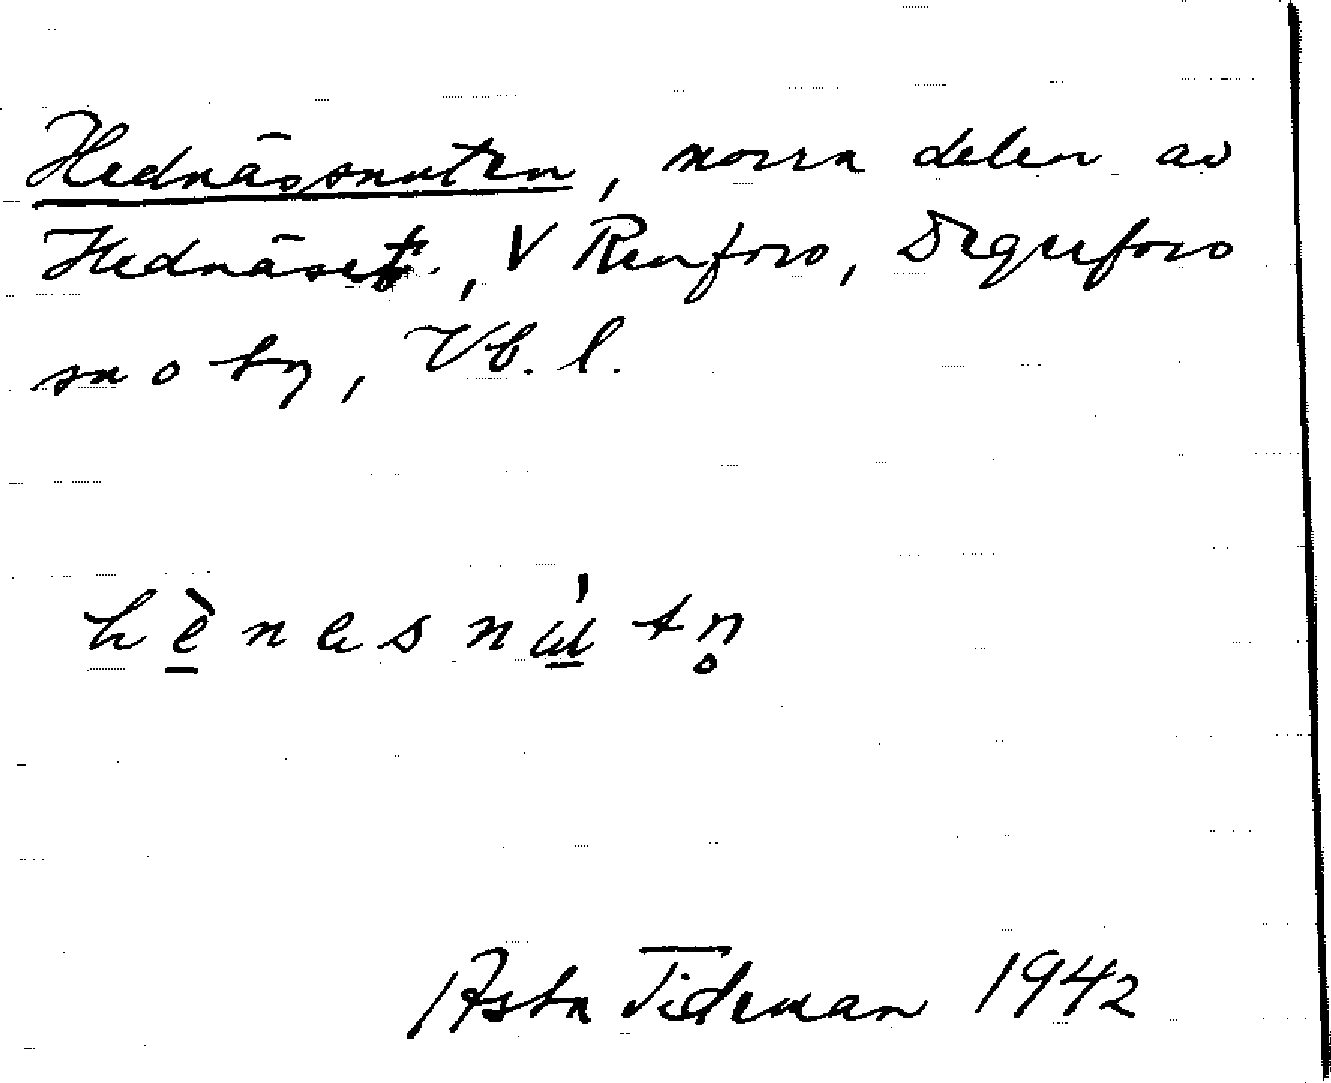 Hednässnuten, norra delen av
Hednäset, V Renfors, Degerfors
sn o by, Vb. l.
hènasnút n̥
Asta Tideman 1942